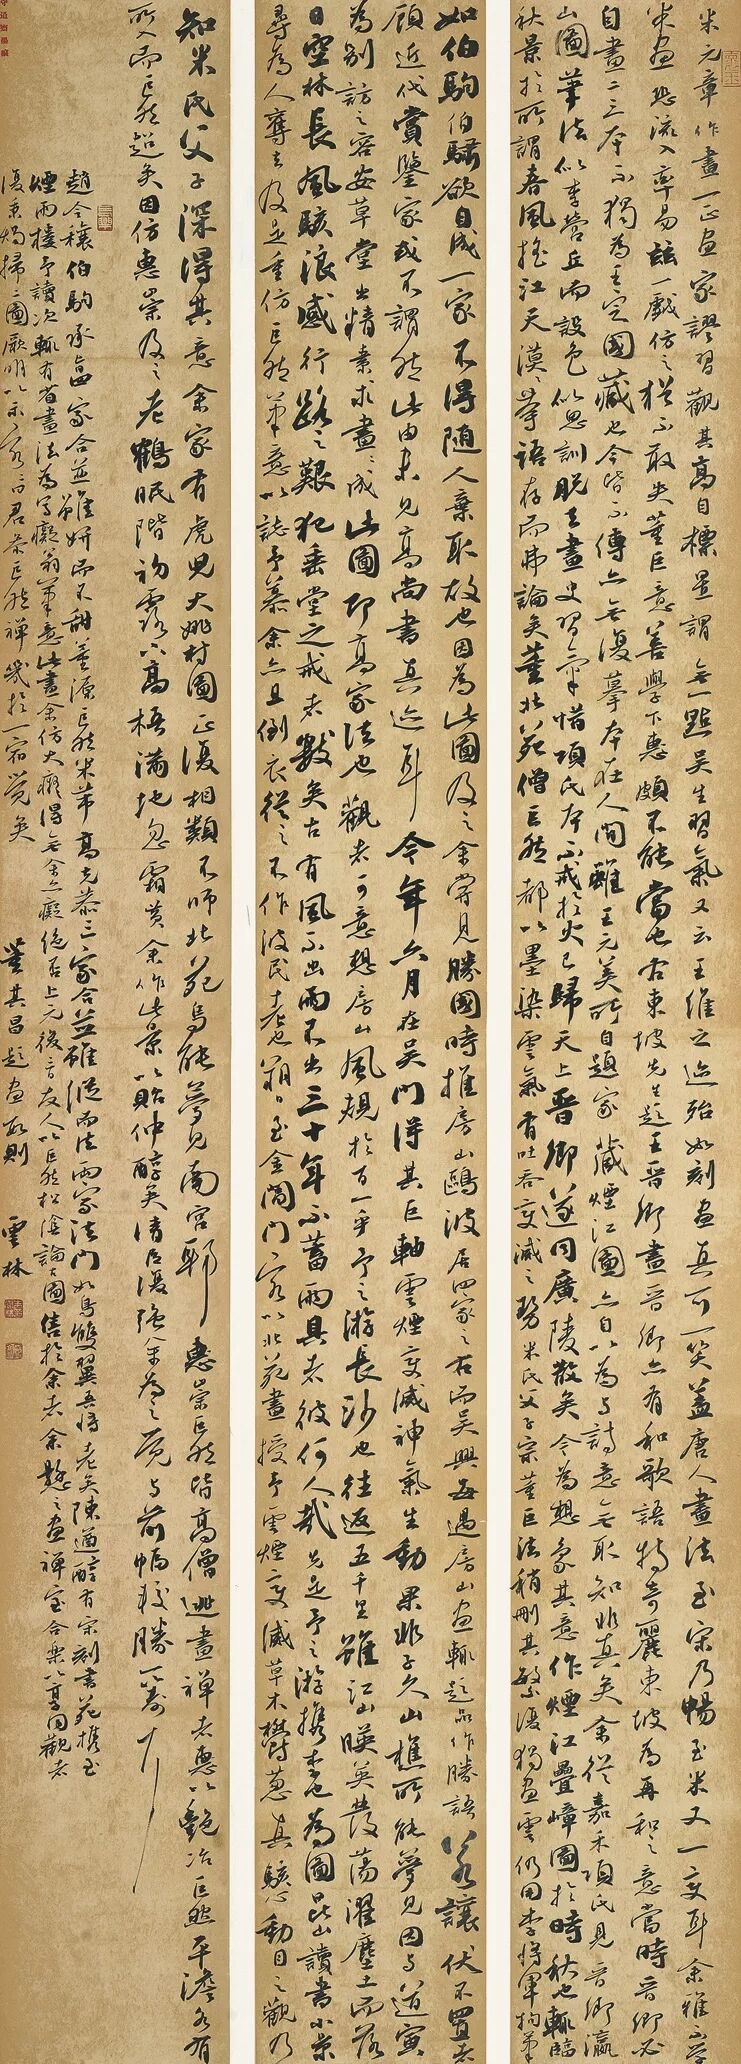 米元章作畫一正畫家謬習觀其高自標置謂無一點吳生習氣又云王維之迹殆如刻畫真可一笑蓋唐人畫法至宋乃暢至米又一變耳余雅不學
米畫恐流入率易茲一戲仿之猶不敢失董巨意善學下惠頗不能當也右東坡先生題王晉卿畫晉卿亦有和歌語特奇麗東坡為再和之意當時晉卿必
自畫二三本不獨為王定國藏也今皆不傳亦無復摹本在人間雖王元美所自題家藏煙江圖亦自以為與詩意無取知非真矣余從嘉禾項氏見晉卿瀛
山圖筆法似李營丘而設色似思訓脫去畫史習氣惜項氏本不戒於火已歸天上晉卿遂同廣陵散矣今為想象其意作煙江疊嶂圖於時秋也輒臨
秋景於所謂春風搖江天漠漠等語存而弗論矣董北苑僧巨然都以墨染雲氣有吐吞變滅之勢米氏父子宗董巨法稍刪其繁復獨畫雲仍用李將軍拘筆
如伯駒伯驌欲自成一家不得隨人棄取故也因為此圖及之余嘗見勝國時推房山鷗波居四家之右而吳興每遇房山畫輒題品作勝語若讓伏不置者
顧近代賞鑒家或不謂然此由未見高尚書真迹耳今年六月在吳門得其巨軸雲煙變滅神氣生動果非子久山樵所能夢見因與道寅
為別訪之容安草堂出精素求畫畫成此圖即高家法也觀者可意想房山風規於百一乎予之游長沙也往返五千里雖江山映英發蕩濯塵土而落
日空林長風駭浪感行路之艱犯垂堂之戒者數矣古有風不出雨不出三十年不蓄雨具者彼何人哉先是予之游攜李也為圖昆山讀書小景
尋為人奪去及是重仿巨然筆意以誌予慕余亦且倒衣從之不作波民老也朔日至金閶門客以北苑畫授予雲煙變滅草木鬱葱真駭心動目之觀乃
知米氏父子深得其意余家有虎兒大姚村圖正復相類不師北苑烏能夢見南宮耶惠崇巨然皆高僧逃畫禪者惠以艷冶巨然平澹各有
所入而巨然超矣因仿惠崇及之老鶴眠階初露下高梧滿地忽霜黃余作此景以貽仲醇矣清臣復強余為之覺與前幅較勝一籌
趙令穰伯駒承旨三家合並雖妍而不甜董源巨然米芾高克恭三家合並雖縱而法兩家法門如鳥雙翼吾將老矣陳道醇有宋刻書苑攜至
煙雨樓予讀次輒有省畫法為寫癡翁筆意此畫余仿大癡得無余亦癡絕否上元後三日友人以巨然松陰論古圖售於余者余懸之畫禪室合樂以享同觀者
復秉燭掃二圖厥明以示客客曰君恭巨然禪幾於一宿覺矣
董其昌題畫數則 雲林